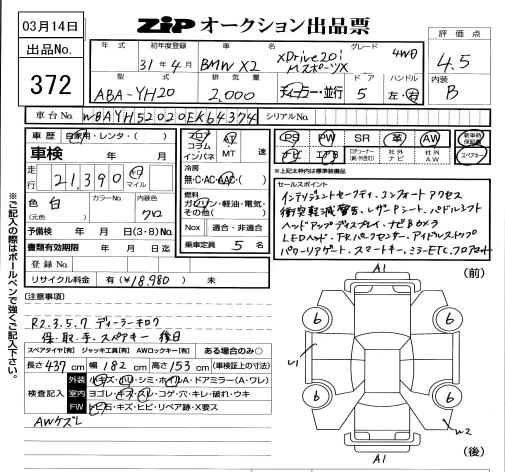 03月14日
ZiP オークション出品票
出品No.
372
年式 初年度登録 車名 グレード
31年4月 BMW X2 xDrive20i MスポーツX 4WD
評価点
4.5
型式 排気量 ドア ハンドル
ABA-YH20 2,000 ディーラー・並行 5 左・右
内装
B
車台No. WBAYH52020EK64374 シリアルNo.
車歴 自家用・レンタ・( )
車検 年 月
走行 21,390 キロ マイル
色 白 カラーNo. 内装色 クロ
(元色)
予備検 年 月 日(3・8)No.
書類有効期限 年 月 日迄
登録No.
リサイクル料金 有(¥18,980)
フロア コラム インパネ
AT MT 速
冷房
無・AC・AAC・( )
燃料
ガソリン・軽油・電気・その他( )
Nox 適合・非適合
乗車定員 5 名
PS PW SR 革 AW
ナビ エアB
社外ナビ 社外AW
新車時保証書
スペアキー
※上記太枠内は標準装備品
セールスポイント
インテリジェントセーフティ、コンフォートアクセス
衝突軽減警告、レザーシート、パドルシフト
ヘッドアップディスプレイ、ナビBカメラ
LEDヘッド、FRパークセンサー、アイドルストップ
パワーリアゲート、スマートキー、ミラーETC、フロアマット
※ご記入の際はボールペンで強くご記入下さい。
(注意事項)
R2.3.5.7 ディーラーキロク
保・取・手・スペアキー 後日
スペアタイヤ[有] ジャッキ工具[有] AWロックキー[有] ある場合のみ○
長さ 437 cm 幅 182 cm 高さ 153 cm (車検証上の寸法)
検査記入
外装 小キズ・凹・シミ・ホイルA・ドアミラー(A・ワレ)
室内 ヨゴレ・キズ・スレ・コゲ・穴・キレ・破れ・ウキ
FW トビ石・キズ・ヒビ・リペア跡・X要ス
AWケズレ
A1 (前)
6 6
U1
6 6
W2
A1 (後)